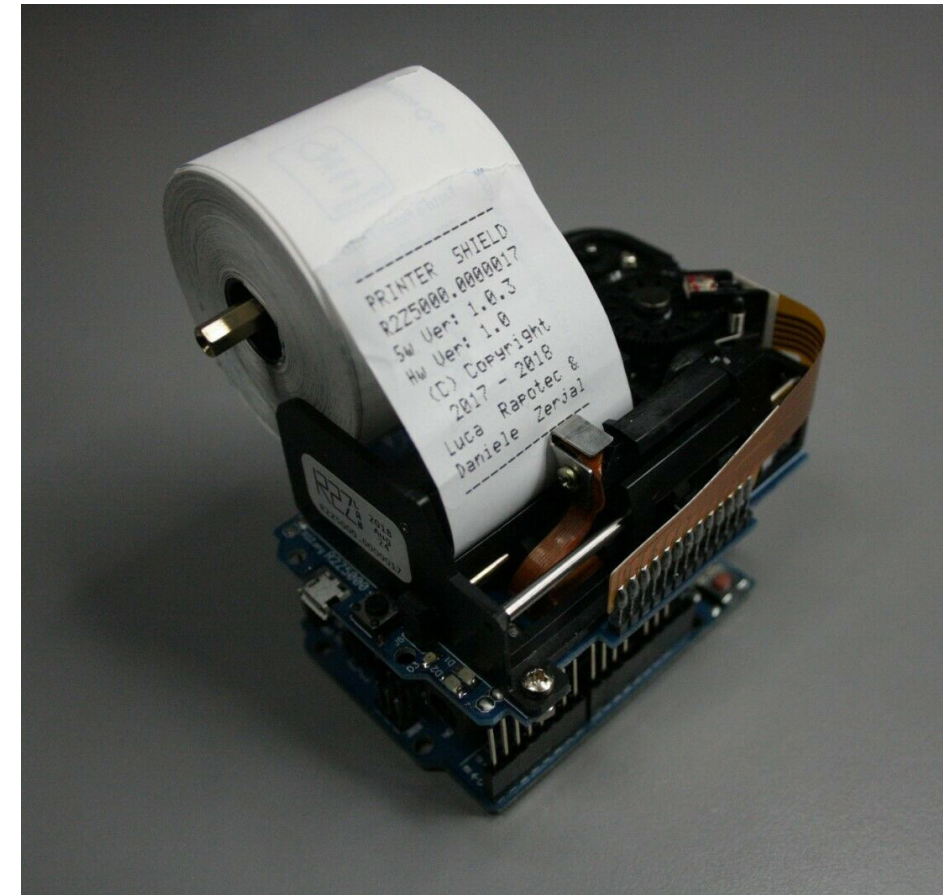 --------------------
PRINTER SHIELD
R2Z5000.0000017
Sw Ver: 1.0.3
Hw Ver: 1.0
(C) Copyright
2017 - 2018
Luca Rapotec &
Daniele Zerjal
--------------------
R2Z
2018
Aug
R2Z5000.0000017
R2Z5000
D1
D2
D3